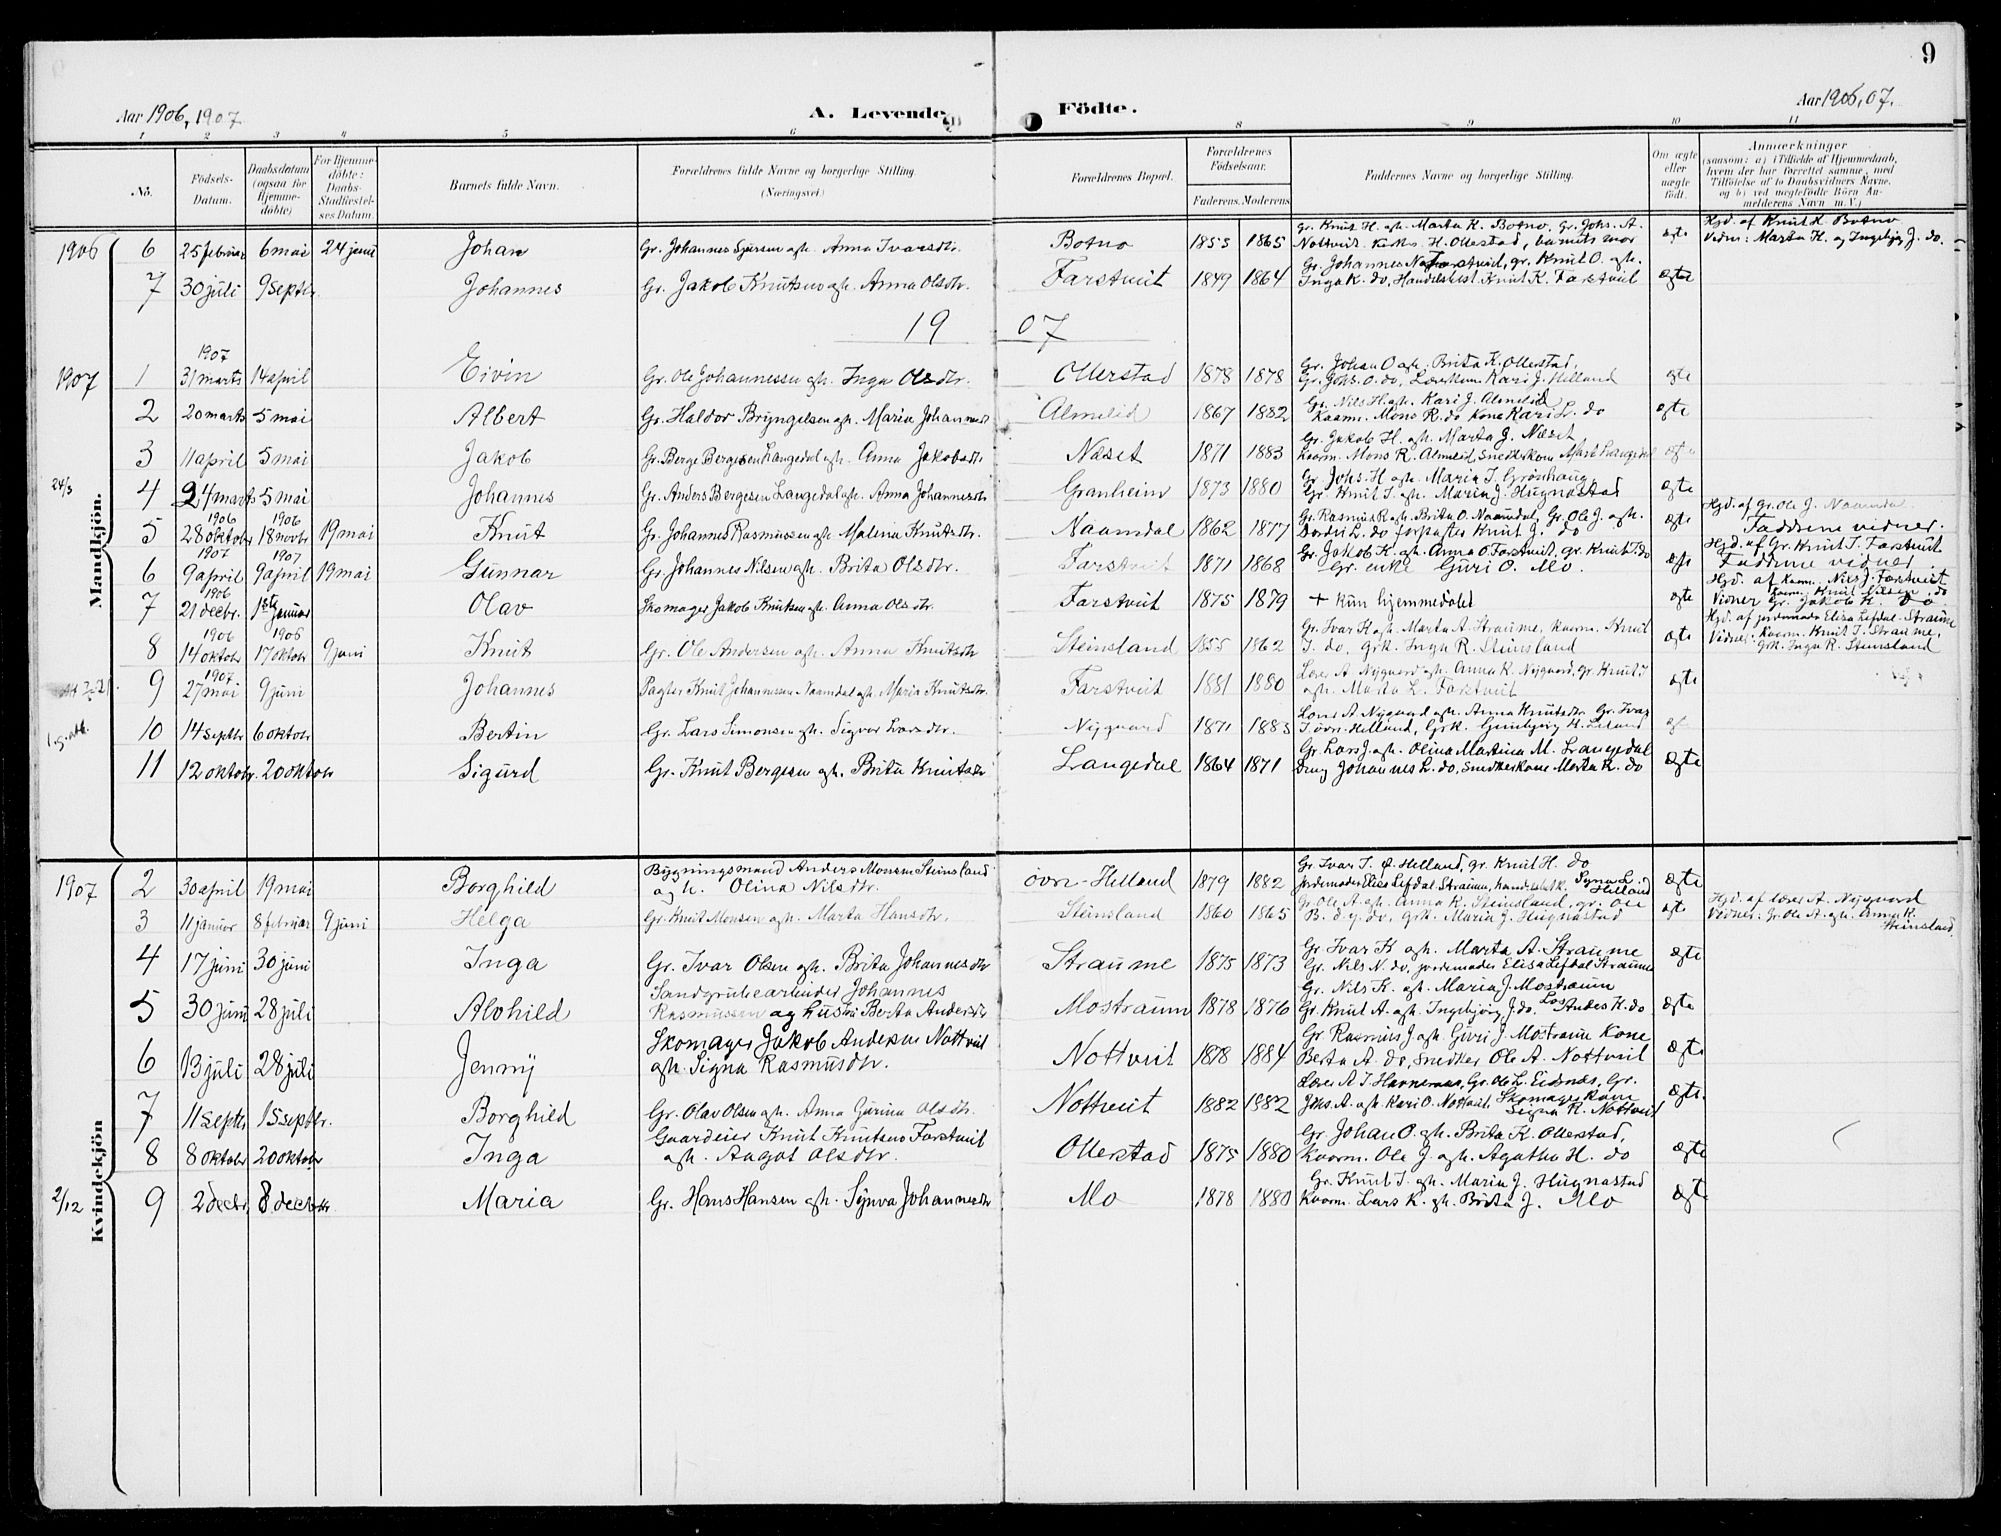 9
Aar 1906, 1907
A. Levende
Födte.
Aar 1906, 07.
1 2 3 4 5 6 8 9 10 11
No.
Födsels-Datum.
Daabsdatum (ogsaa for Hjemme-döbte)
For Hjemme-döbte: Daabs-Stadfæstel-ses Datum.
Barnets fulde Navn.
Forældrenes fulde Navne og borgerlige Stilling (Næringsvei)
Forældrenes Bopæl.
Forældrenes Födselsaar.
Faderens. Moderens.
Faddernes Navne og borgerlige Stilling.
Om ægte eller uægte födt.
Anmærkninger
(saasom: a) i Tilfælde af Hjemmedaab, hvem der har forrettet samme, med Tilföielse af to Daabsvidners Navne, og b) ved uægtefödte Börn An-melderens Navn m. V.)
Mandkjön.
1906 6 25 februar 6 mai 24 juni Johan Gr. Johannes Sjursen og h. Anna Ivarsdtr. Botno 1855 1865 gr. Knut H. og h. Marta K. Botno, Gr. Johs. A. Nottveit H. Ollestad, barnets mor ægte Hjd. af Knut K. Botno Vidner: Marta H. og Ingebjør J. do.
7 30 juli 9 septbr. Johannes Gr. Jakob Knutsen og h. Anna Olsdtr. Farstveit 1849 1864 Gr. Johannes N. Farstveit, gr. Knut O. og h. Inga K. do, Handelsbest. Knut K. Farstveit ægte
1907
1907 1 1907 31 marts 14 april Eivin Gr. Ole Johannessen og h. Inga Olsdtr. Ollerstad 1878 1878 Gr. Johan O og h. Brita K. Ollerstad, Gr. Johs. O. do, Lærerkone Kari J. Helland ægte
2 20 marts 5 mai Albert Gr. Haldor Bryngelsen og h. Maria Johannesdtr. Almelid 1867 1882 Gr. Nils H. og h. Kari J. Almelid Kaarm. Mons R. do Kone Kari L. do ægte
3 11 april 5 mai Jakob Gr. Berge Bergesen Langedal og h. Anna Jakobsdtr. Næset 1871 1883 Gr. Jakob H. og h. Marta J. Næset Kaarm. Mons R. Almelid, Snedkerkone Marta Langedal ægte
24/3 4 24 marts 5 mai Johannes Gr. Anders Bergesen Langedal og h. Anna Johannesdtr. Granheim 1873 1880 Gr. Johs. H. og h. Maria I. Grønhaug, Gr. Knut I. og h. Maria J. Hugnastad ægte
5 1906 28 oktobr 1906 18 novbr 19 mai Knut Gr. Johannes Rasmussen og h. Malena Knutsdtr. Naamdal 1862 1877 Gr. Rasmus R og h. Brita O. Naamdal, Gr. Ole J. og h. Bordil L. do forpagter Knut J. do ægte Hjd. af Gr. Ole J. Naamdal Faddrene vidner.
6 1907 9 april 1907 9 april 19 mai Gunnar Gr. Johannes Nilsen og h. Brita Olsdtr. Farstveit 1871 1868 Gr. Jakob K. og h. Anna O. Farstveit, gr. Knut I. do Gr. enke Guri O. Mo. ægte Hjd. af Gr. Knut I. Farstveit Faddrene vidner
7 1906 21 decbr. 1ste januar Olav Skomager Jakob Knutsen og h. Anna Olsdtr. Farstveit 1875 1879 + kun hjemmedøbt ægte Hjd. af Kaarm. Nils J. Farstveit Vidner Kaarm. Knut Nilsen do Gr. Jakob K. do
8 1906 14 oktobr 1906 17 oktobr 9 juni Knut Gr. Ole Andersen og h. Anna Knutsdtr Steinsland 1855 1862 Gr. Ivar K og h. Marta A. Straume, Kaarm. Knut I. do, grk. Inga R. Steinsland ægte Hjd. af jordemoder Elisa Lefdal Straume Vidner: Kaarm. Knut I. Straume, Grk. Inga R. Steinsland
9 1907 27 mai 9 juni Johannes Pagter Knut Johannessen Naamdal og h. Maria Knutsdtr. Farstveit 1881 1880 Lærer A Nygaard og h. Anna K. Nygaard, gr. Knut I og h. Marta L. Farstveit ægte
10 14 septbr 6 oktobr Bertin Gr. Lars Simonsen og h. Sigvor Larsdtr. Nygaard 1871 1883 Lærer A. Nygaard og h. Anna Knutsdtr Gr. Ivar I øvr. Helland, Grk. Gunbjørg H. Leland
11 12 oktobr. 20 oktobr Sigurd Gr. Knut Bergesen og h. Brita Knutsdtr Langedal 1864 1871 Gr. Lars J. og h. Olina Martina M. Langedal Drug Johannes L. do, Snedkerkone Marta K. do ægte
Kvindekjön
1907 2 30 april 19 mai Borghild Bygningsmand Anders Monsen Steinsland og h. Olina Nilsdtr. øvr. Helland 1879 1882 Gr. Ivar I. Ø. Helland, gr. Knut H. do Jordemoder Elisa Lefdal Straume, handelsbetk. Synva L Helland ægte
3 11 januar 8 februar 9 juni Helga Gr. Knut Monsen og h. Marta Hansdtr. Steinsland 1860 1865 Gr. Ole A og h. Anna K. Steinsland, gr. Ole B. d.y. do, grk. Maria J. Hugnastad ægte Hjd. af lærer A. Nygaard Vidner: Gr. Ole A. og h. Anna K. Steinsland.
4 17 juni 30 juni Inga Gr. Ivar Olsen og h. Brita Johannesdtr Straume 1875 1873 Gr. Ivar K og h. Marta A. Straume Gr. Nils N. do, jordemoder Elisa Lefdal Straume ægte
5 30 juni 28 juli Alvhild Sandgrubearbeider Johannes Rasmussen og hustru Berta Andersdtr Mostraum 1878 1876 Gr. Nils K. og h. Maria J. Mostraum Gr. Knut A. og h. Ingebjørg J. do. Los Andes K. do ægte
6 13 juli 28 juli Jenny Skomager Jakob Andersen Nottveit og h. Signa Rasmusdtr. Nottveit 1878 1884 Gr. Rasmus J og h. Guri J. Mostraum Kone Berta A. do, Snedker Ole A. Nottveit ægte
7 11 septbr 15 septbr. Borghild Gr. Olav Olsen og h. Anna Gurina Olsdtr. Nottveit 1882 1982 Lærer A. I. Hannemaas, Gr. Ole L. Eidsnes, Gr. Johs. A. og h. Kari O. Nottveit, Skomagerkone Signa R. Nottveit ægte.
8 8 oktobr 20 oktobr Inga Gaardeier Knut Knutsen Farstveit og h. Aagot Olsdtr. Ollerstad 1875 1880 Gr. Johan O. og h. Brita K. Ollerstad, Kaarm. Ole J. og h. Agatha H. do ægte
2/12 9 2 decbr. 8 decbr Maria Gr. Hans Hansen og h. Synva Johannesdtr Mo 1878 1880 Gr. Knut I. og h. Maria J. Hugnastad Kaarm. Lars K. og h. Brita J. Mo ægte